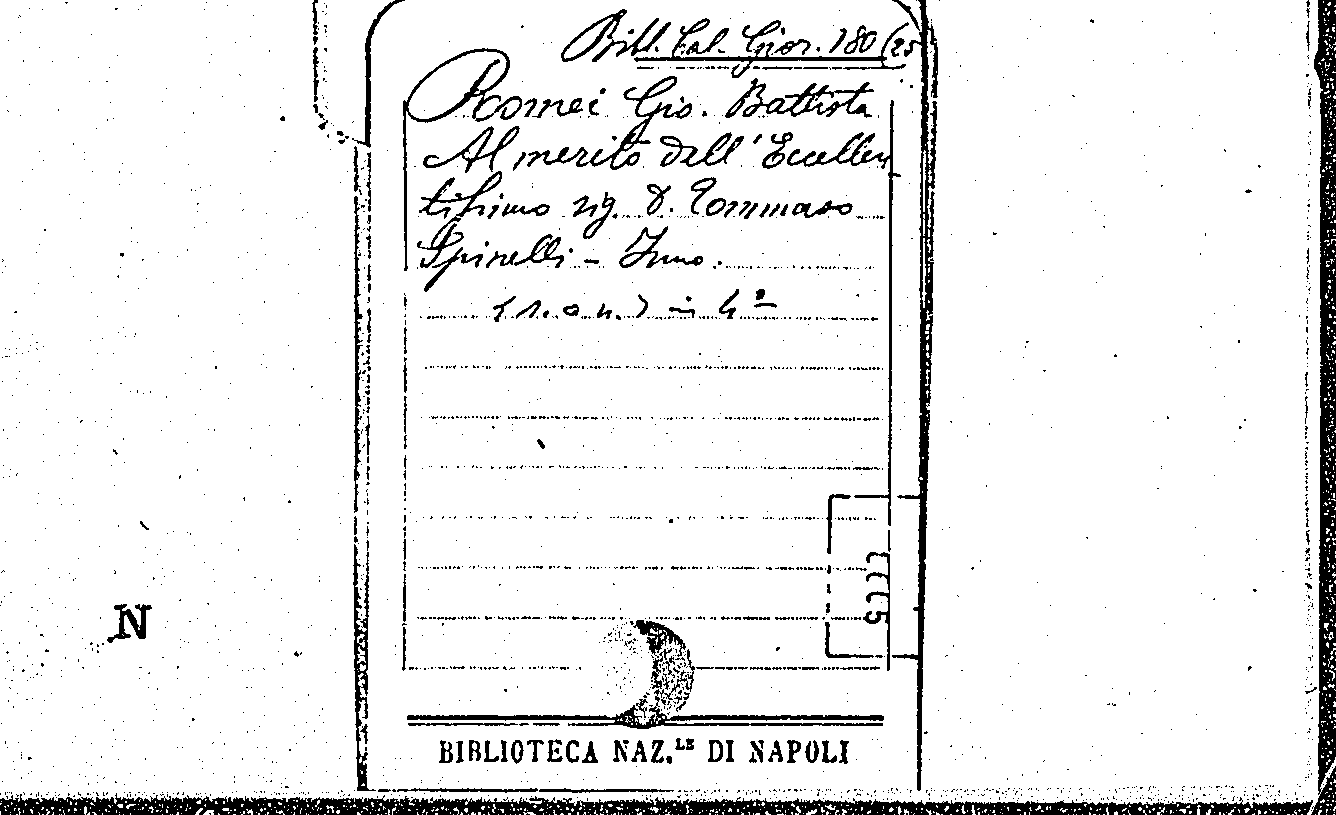 Bibl. Cal. Gior. 180 (25
Romei Gio. Battista
Al merito dell' Eccellen
tissimo sig. D. Tommaso
Spinelli - Inno.
(s. a. n.) in 4º
N
BIBLIOTECA NAZ.LE DI NAPOLI